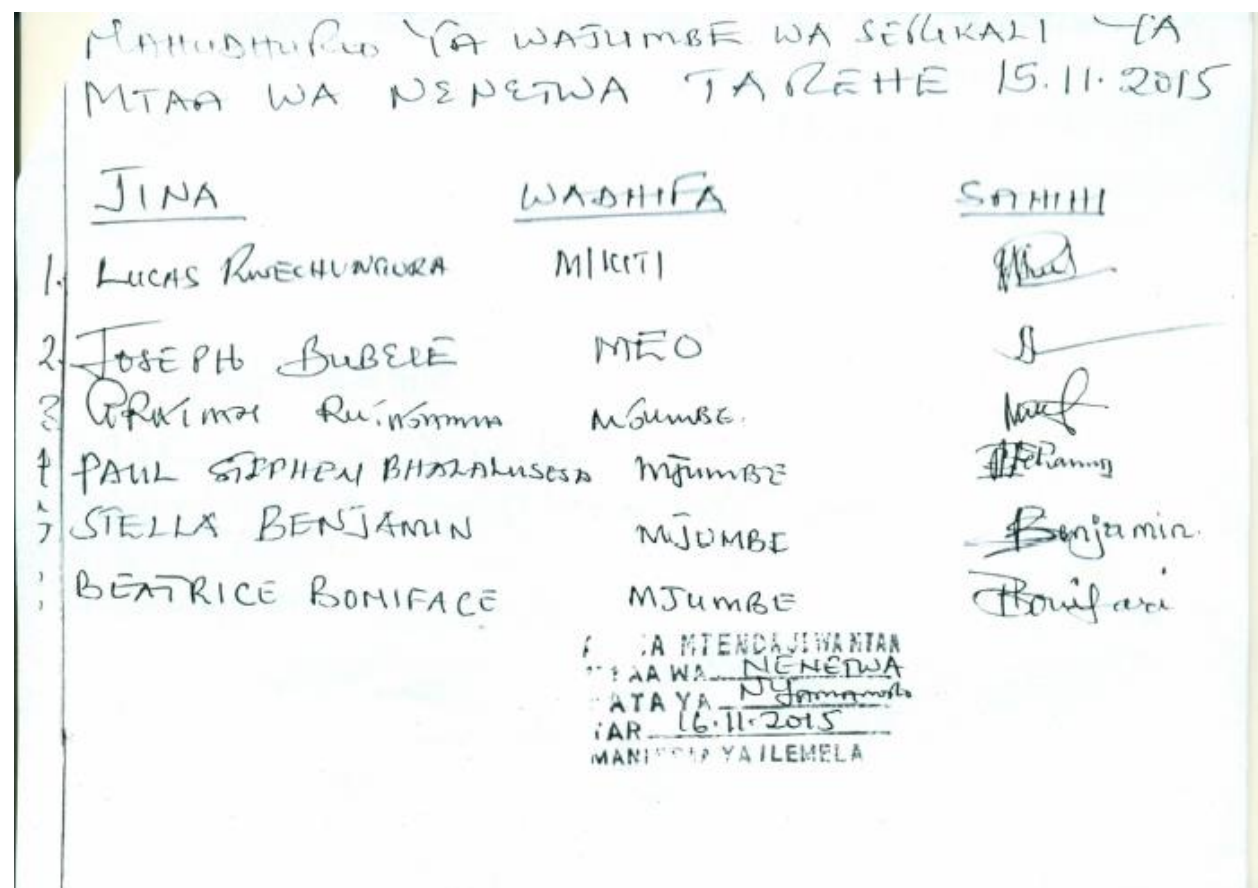 MAHUDHURIO YA WAJUMBE WA SERIKALI YA
MTAA WA NENETWA TAREHE 15.11.2015
JINA WADHIFA SAHIHI
1. LUCAS RWECHUNGURA M/KITI
2. JOSEPH BUBELE MEO
3 MJUMBE.
4 PAUL STEPHEN BHALALUSESA MJUMBE
5 STELLA BENJAMIN MJUMBE Benjamin.
BEATRICE BONIFACE MJUMBE Bonifasi
MTENDAJI WA MTAA
WA NENETWA
KATA YA
TAR 16.11.2015
YA ILEMELA